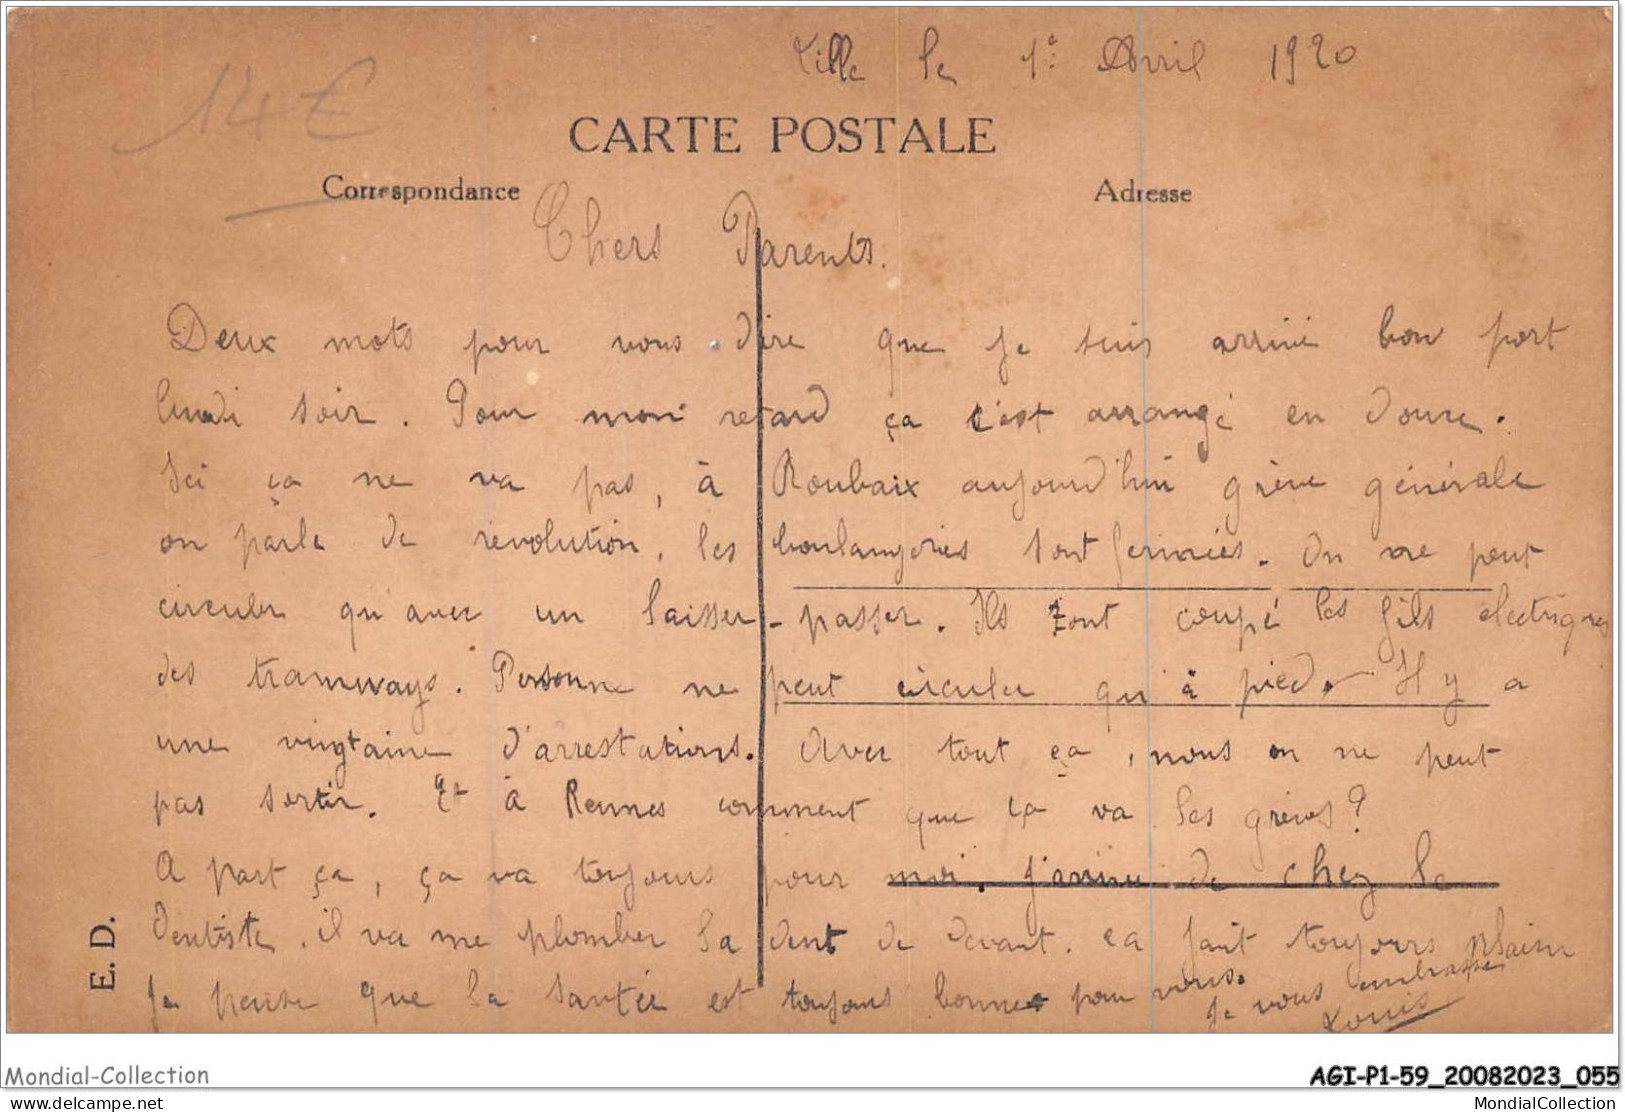 Lille le 1er Avril 1920
14€
CARTE POSTALE
Correspondance
Adresse
Chers Parents.
Deux mots pour vous dire que je suis arrivé bon port
lundi soir. Pour mon retard ça s'est arrangé en douce.
Ici ça ne va pas, à Roubaix aujourd'hui grève générale
on parle de révolution, les boulangeries sont fermées. On ne peut
circuler qu'avec un laisser-passer. Ils ont coupé les fils électriques
des tramways. Personne ne peut circuler qu'à pied. Il y a
une vingtaine d'arrestations. Avec tout ça, nous on ne peut
pas sortir. Et à Rennes comment que ça va les grèves ?
A part ça, ça va toujours pour moi. J'arrive de chez le
dentiste, il va me plomber la dent de devant. ça fait toujours plaisir
Je pense que la santée est toujours bonne pour vous.
Je vous embrasse
Louis
E.D.
Mondial-Collection
AGI-P1-59_20082023_055
delcampe.net
MondialCollection